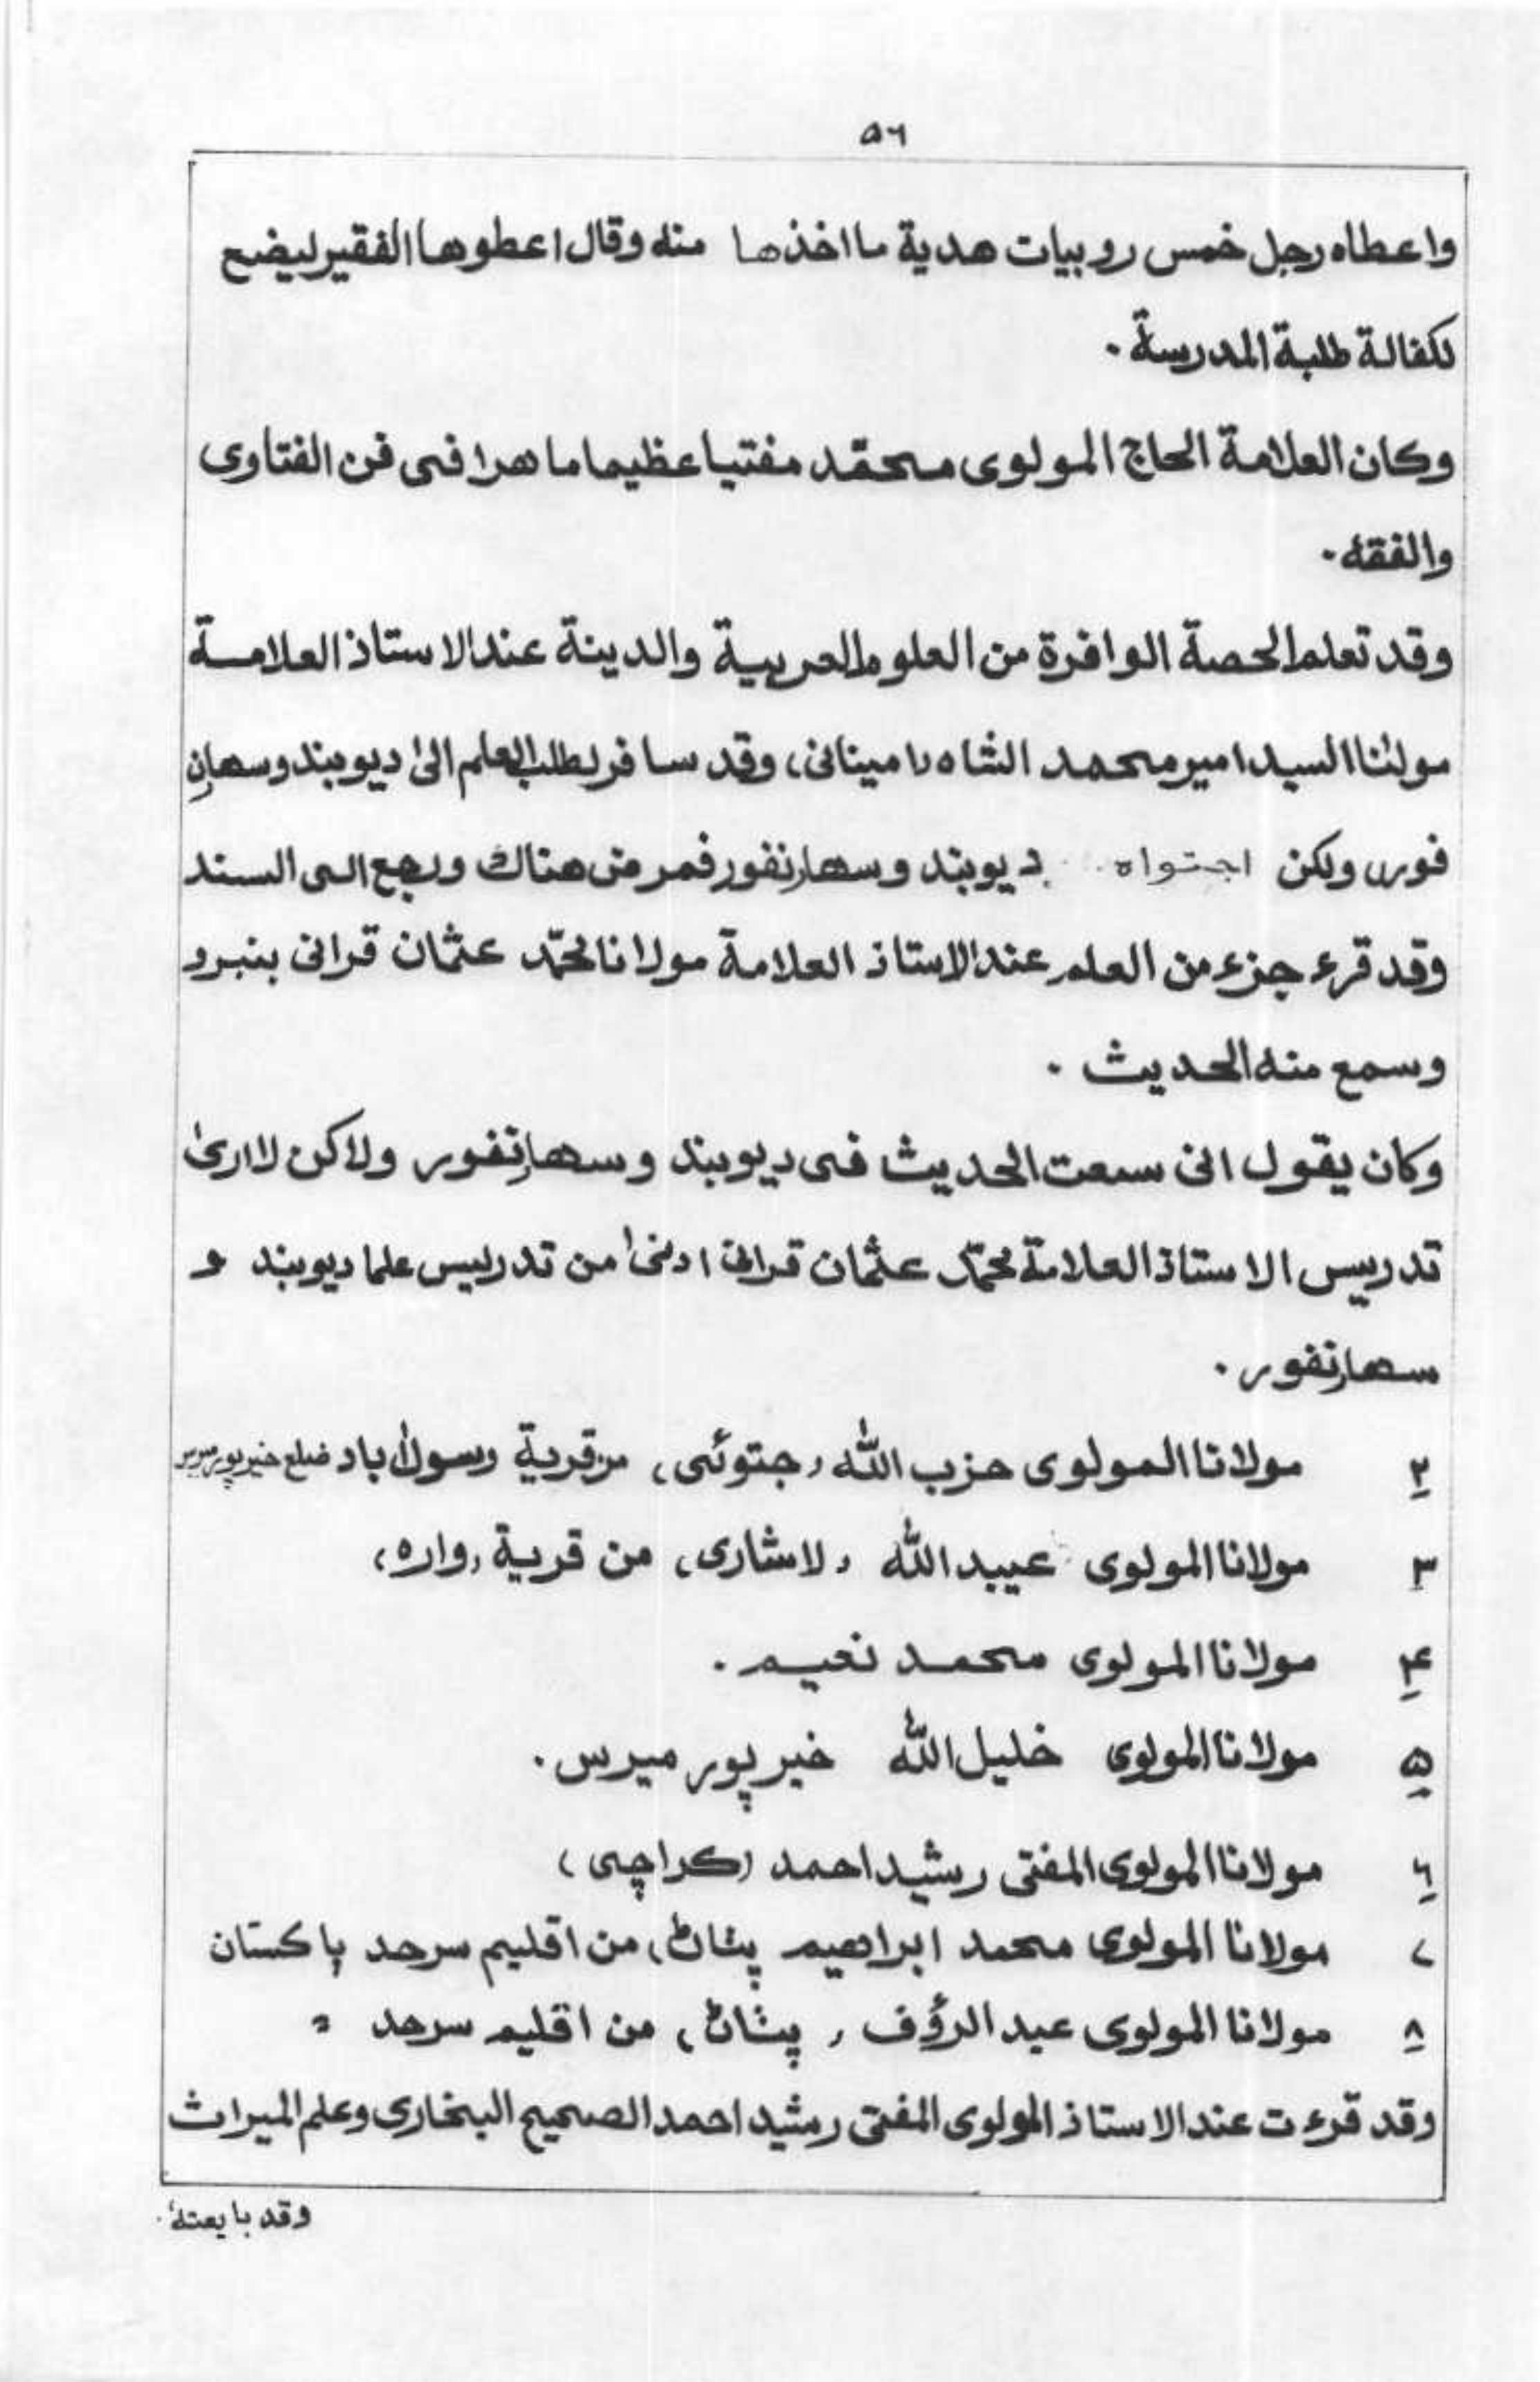 ۵٦
واعطاه رجل خمس روبيات هدية ما اخذها منه وقال اعطوها الفقير ليضع
لكفالة طلبة المدرسة ۔
وكان العلامة الحاج المولوی محمّد مفتيا عظيما ماهرا فی فن الفتاوی
والفقه ۔
وقد تعلم الحصة الوافرة من العلوم العربية والدينة عند الاستاذ العلامة
مولٰنا السيد امير محمد الشاه (اميناني) وقد سافر لطلب العلم الیٰ ديوبند وسهارن
فور، ولكن اجتواه ديوبند وسهارنفور فمرض هناك ورجع الی السند
وقد قرء جزء من العلم عند الاستاذ العلامة مولانا محمّد عثمان قرانی بنبرو
وسمع منه الحديث ۔
وكان يقول انی سمعت الحديث فی ديوبند وسهارنفور ولاكن لا اریٰ
تدريس الاستاذ العلامة محمّد عثمان قرانی ادنیٰ من تدريس علما ديوبند و
سهارنفور ۔
٢ مولانا المولوی حزب اللّٰه (جتوئی) من قرية رسول اباد ضلع خيرپور ميرس
٣ مولانا المولوی عبيد اللّٰه (لاشاری) من قرية (واره)
۴ مولانا المولوی محمد نعيم ۔
۵ مولانا المولوی خليل اللّٰه خيرپور ميرس ۔
٦ مولانا المولوی المفتی رشيد احمد (كراچی)
٧ مولانا المولوی محمد ابراهيم پٹاڻ) من اقليم سرحد پاكستان
٨ مولانا المولوی عبد الرؤف (پٹاڻ) من اقليم سرحد "
وقد قرءت عند الاستاذ المولوی المفتی رشيد احمد الصحيح البخاری وعلم الميراث
وقد بايعته